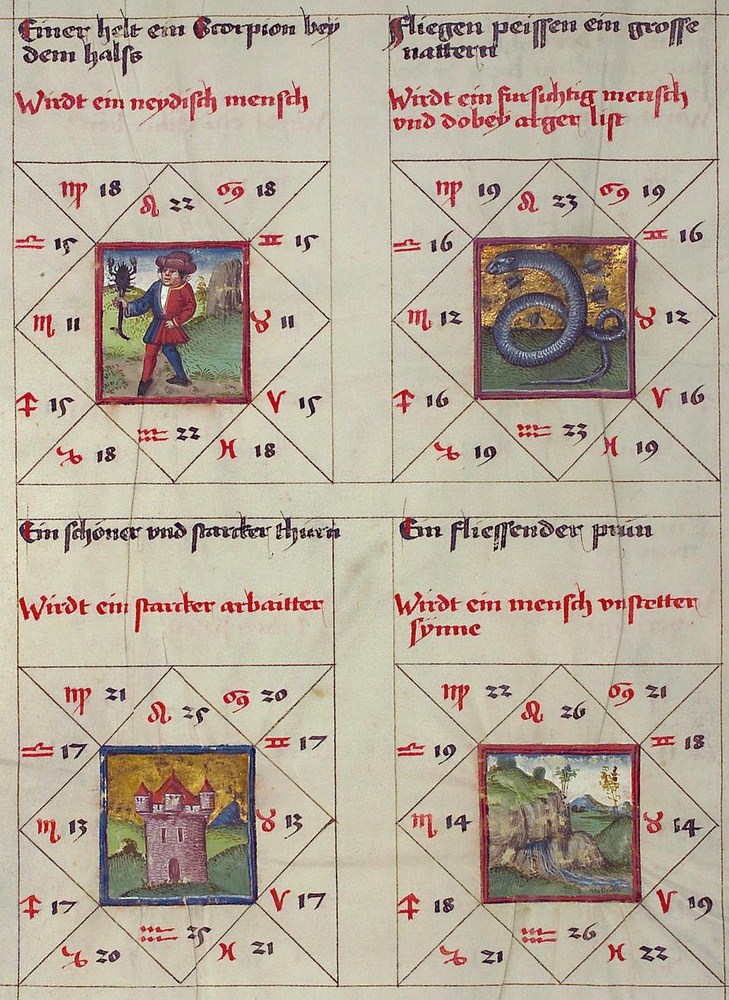 Einer helt ein Scorpion bey
dem hals
Wirdt ein neydisch mensch
♍ 18 ♌ 22 ♋ 18
♎ 15 ♊ 15
♏ 11 ♉ 11
♐ 15 ♈ 15
♑ 18 ♒ 22 ♓ 18
Fliegen peissen ein grosse
nattern
Wirdt ein fursichtig mensch
vnd dobey arger list
♍ 19 ♌ 23 ♋ 19
♎ 16 ♊ 16
♏ 12 ♉ 12
♐ 16 ♈ 16
♑ 19 ♒ 23 ♓ 19
Ein schöner vnd starcker thurn
Wirdt ein starcker arbaitter
♍ 21 ♌ 25 ♋ 20
♎ 17 ♊ 17
♏ 13 ♉ 13
♐ 17 ♈ 17
♑ 20 ♒ 25 ♓ 21
Ein fliessender prün
Wirdt ein mensch vnstetter
synne
♍ 22 ♌ 26 ♋ 21
♎ 19 ♊ 18
♏ 14 ♉ 14
♐ 18 ♈ 19
♑ 21 ♒ 26 ♓ 22